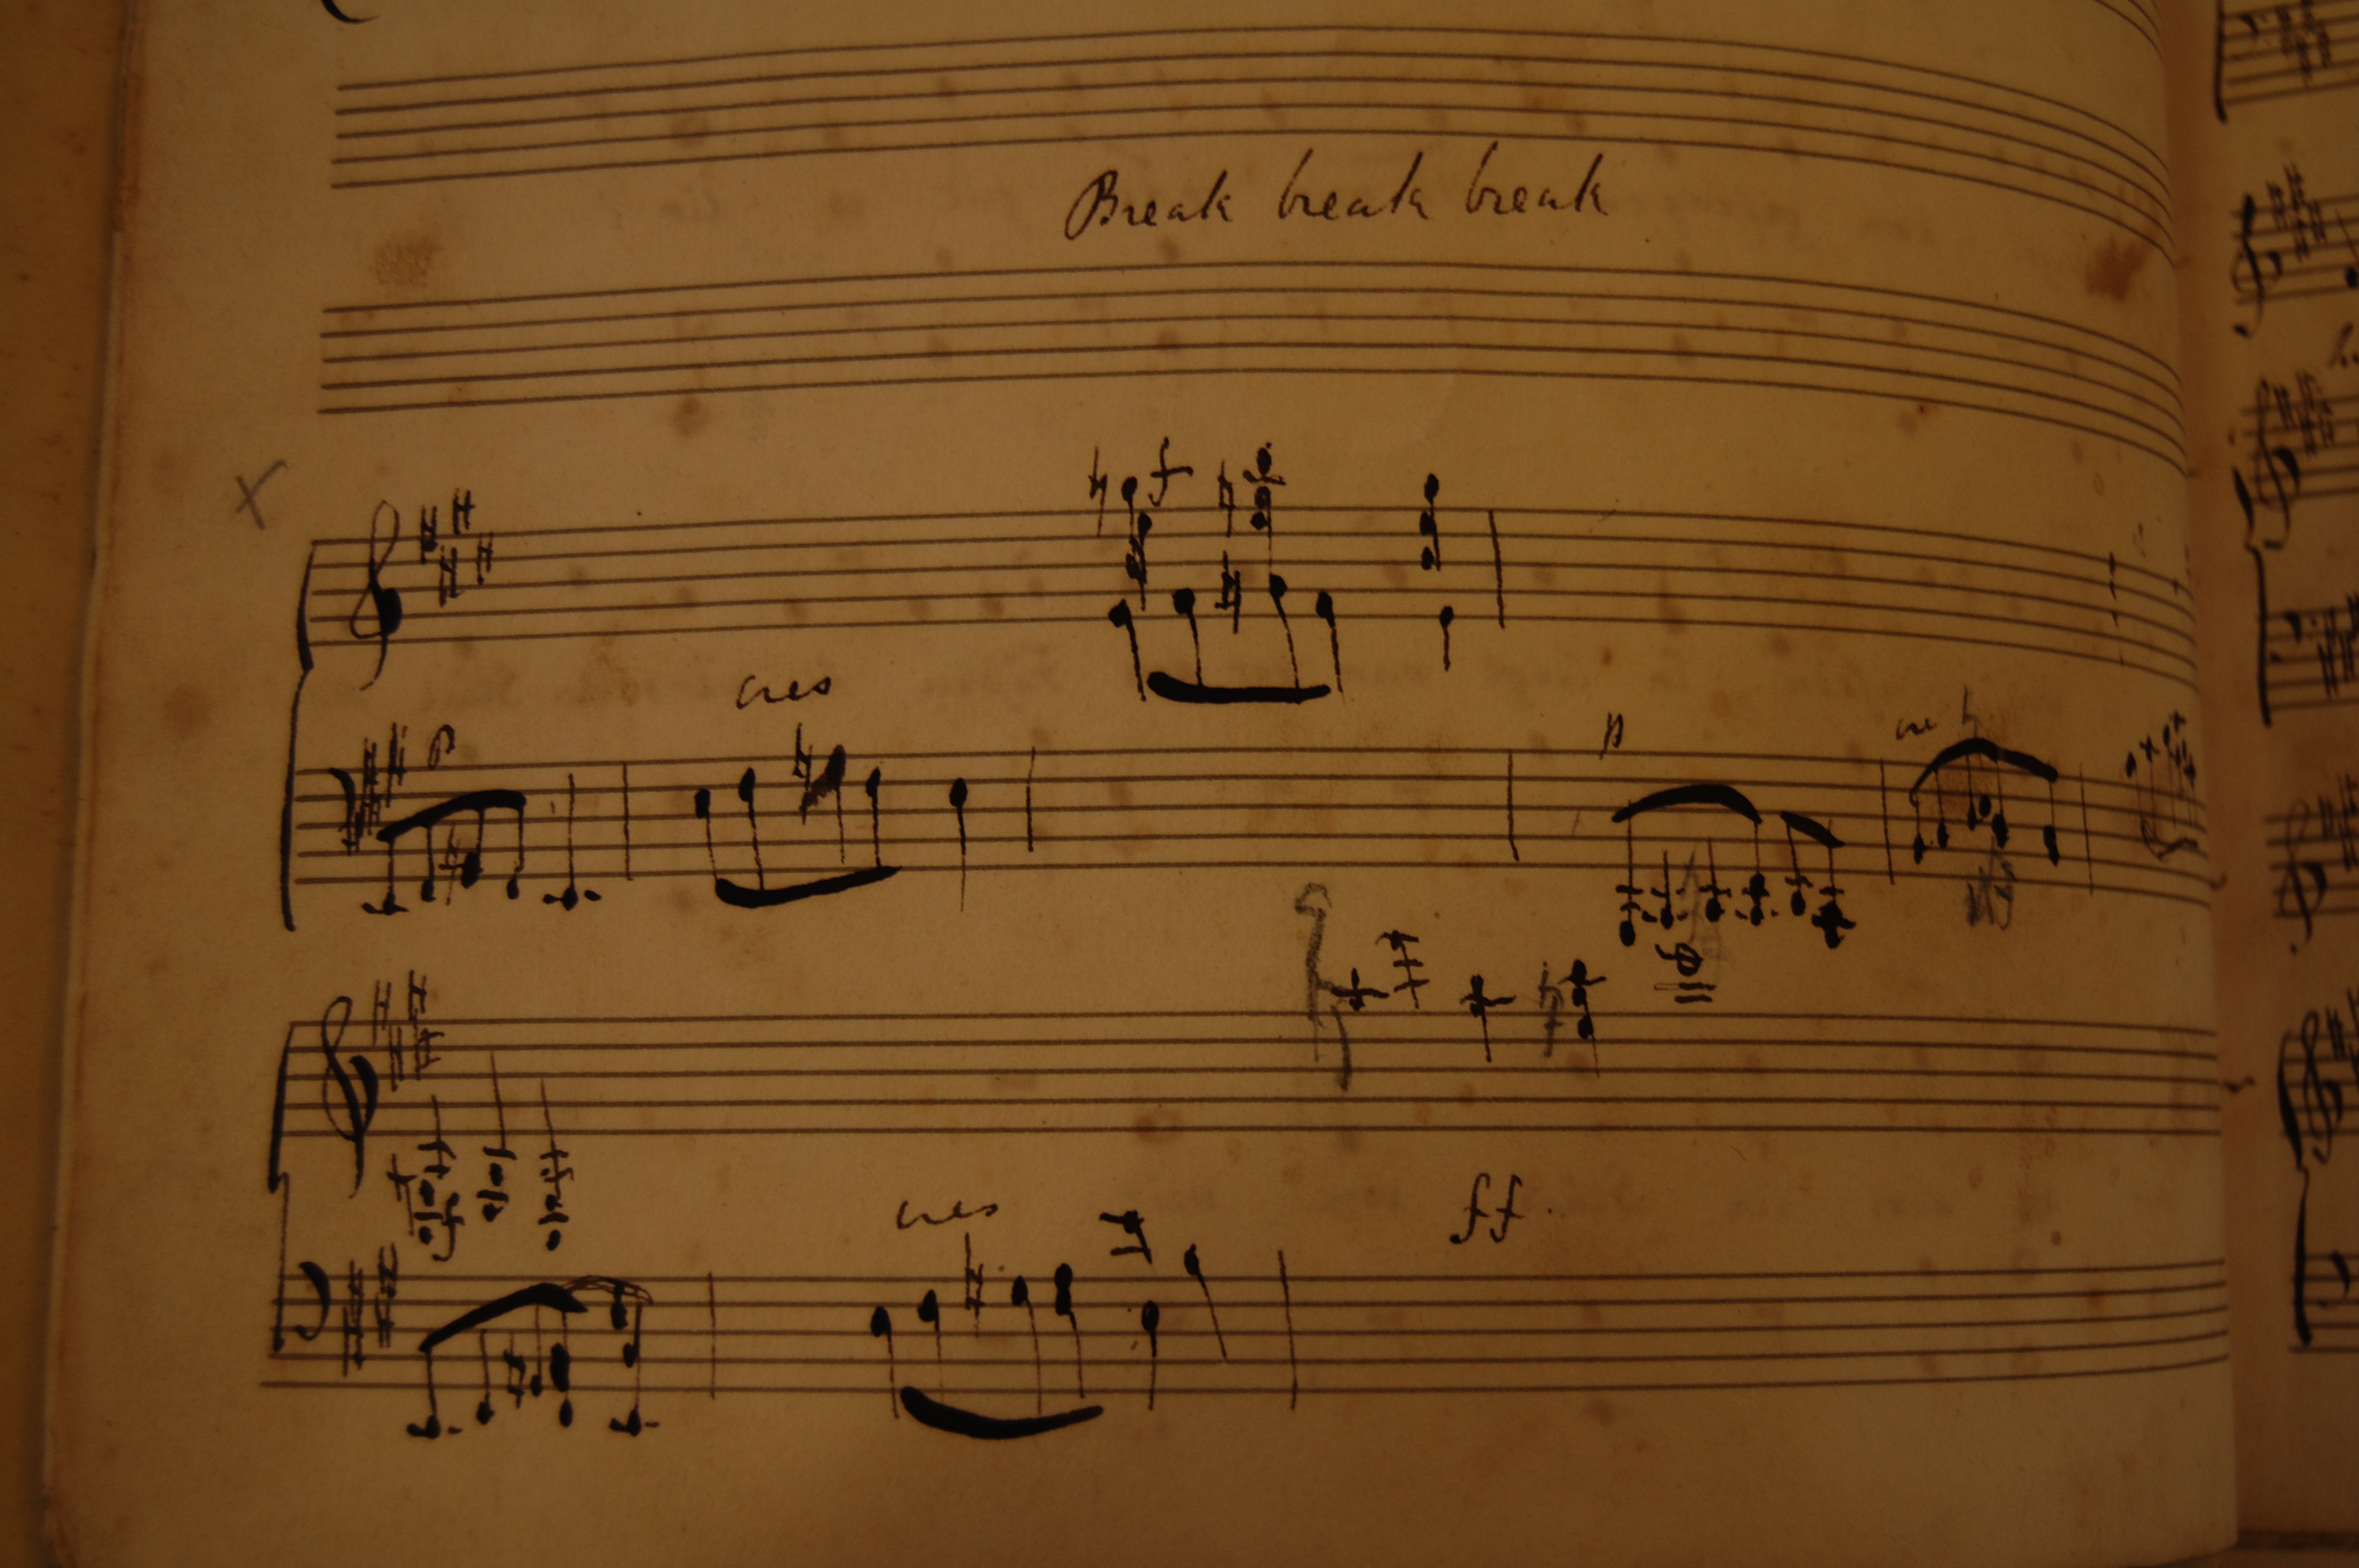 Break break break
x
f
cres
p
p
cres
ff.